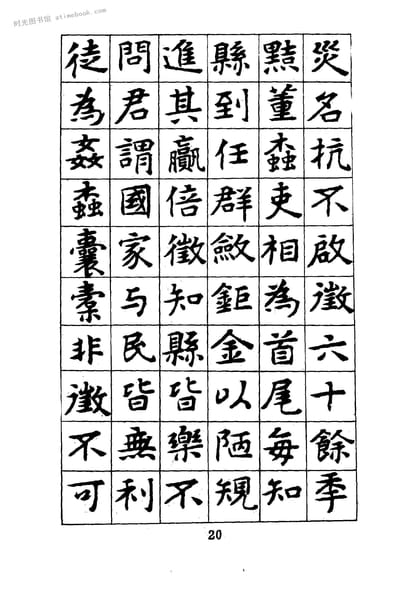 时光图书馆 - atimebook.com
災名抗不啟徵六十餘季
黠董蠹吏相為首尾每知
縣到任群斂鉅金以陋規
進其贏倍徵知縣皆樂不
問君謂國家与民皆無利
徒為姦蠹囊橐非徵不可
20